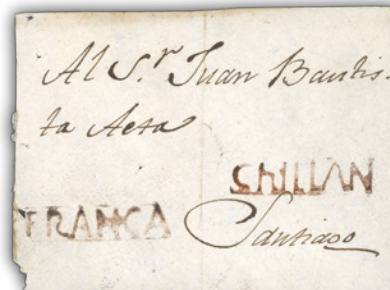 Al S.r Juan Bautis-
ta Aeta
CHILLAN
FRANCA
Santiago